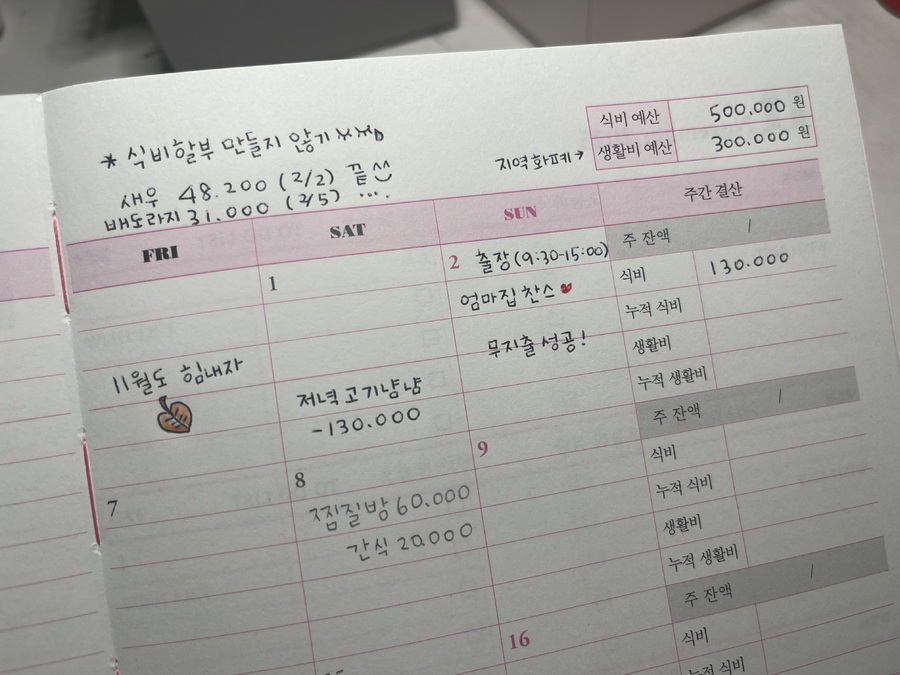 식비 예산 500.000 원
지역화폐→ 생활비 예산 300.000 원
* 식비할부 만들지 않기
새우 48.200 (2/2) 끝^^
배도라지 31.000 (2/5) ...
FRI SAT SUN 주간 결산
1
2 출장(9:30-15:00)
엄마집 찬스
무지출 성공!
11월도 힘내자
저녁 고기냠냠
-130.000
주 잔액 /
식비 130.000
누적 식비
생활비
누적 생활비
7
8
찜질방 60.000
간식 20.000
9
주 잔액 /
식비
누적 식비
생활비
누적 생활비
16
주 잔액 /
식비
누적 식비